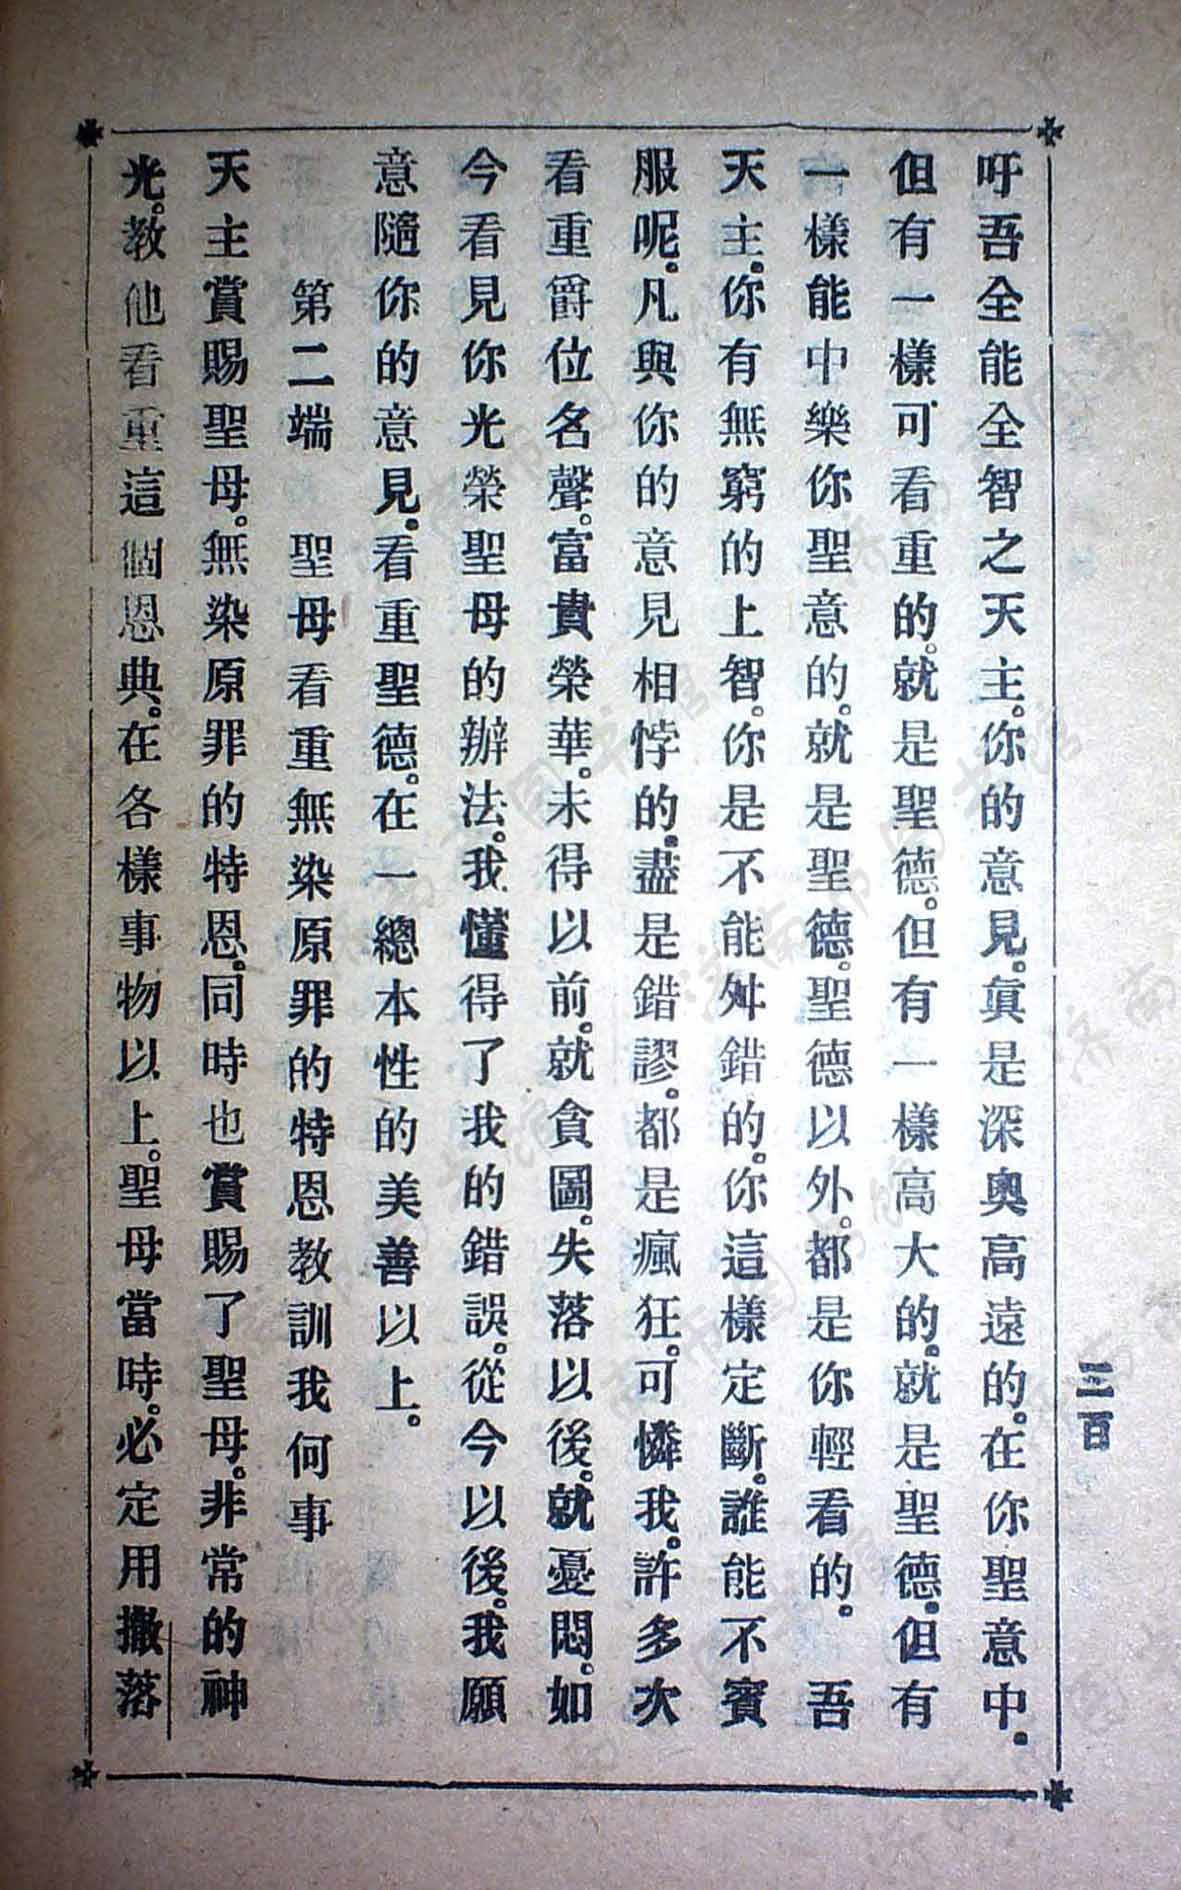 吁吾全能全智之天主。你的意見。眞是深奧高遠的。在你聖意中。
但有一樣可看重的。就是聖德。但有一樣高大的。就是聖德。但有
一樣能中樂你聖意的。就是聖德。聖德以外。都是你輕看的。吾
天主。你有無窮的上智。你是不能舛錯的。你這樣定斷。誰能不賓
服呢。凡與你的意見相悖的。盡是錯謬。都是瘋狂。可憐我。許多次
看重爵位名聲。富貴榮華。未得以前。就貪圖。失落以後。就憂悶。如
今看見你光榮聖母的辦法。我懂得了我的錯誤。從今以後。我願
意隨你的意見。看重聖德。在一總本性的美善以上。
第二端 聖母看重無染原罪的特恩教訓我何事
天主賞賜聖母。無染原罪的特恩。同時也賞賜了聖母。非常的神
光。教他看重這個恩典。在各樣事物以上。聖母當時。必定用撒落
三百